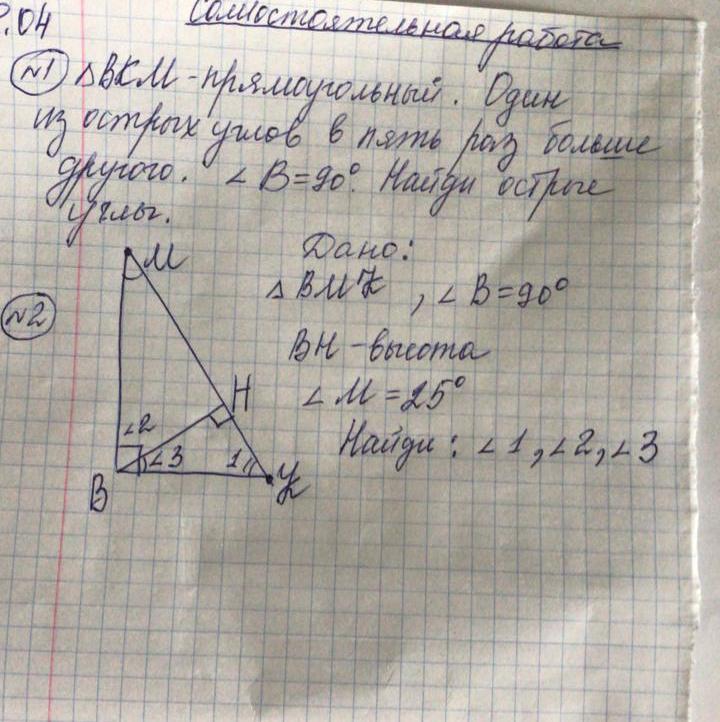 .04
Самостоятельная работа
№1 △ВКМ - прямоугольный. Один
из острых углов в пять раз больше
другого. ∠B=90°. Найди острые
углы.
№2
Дано:
△ВМК, ∠B=90°
ВН - высота
∠M=25°
Найди: ∠1, ∠2, ∠3
М
Н
∠2
∠3
1
В
К